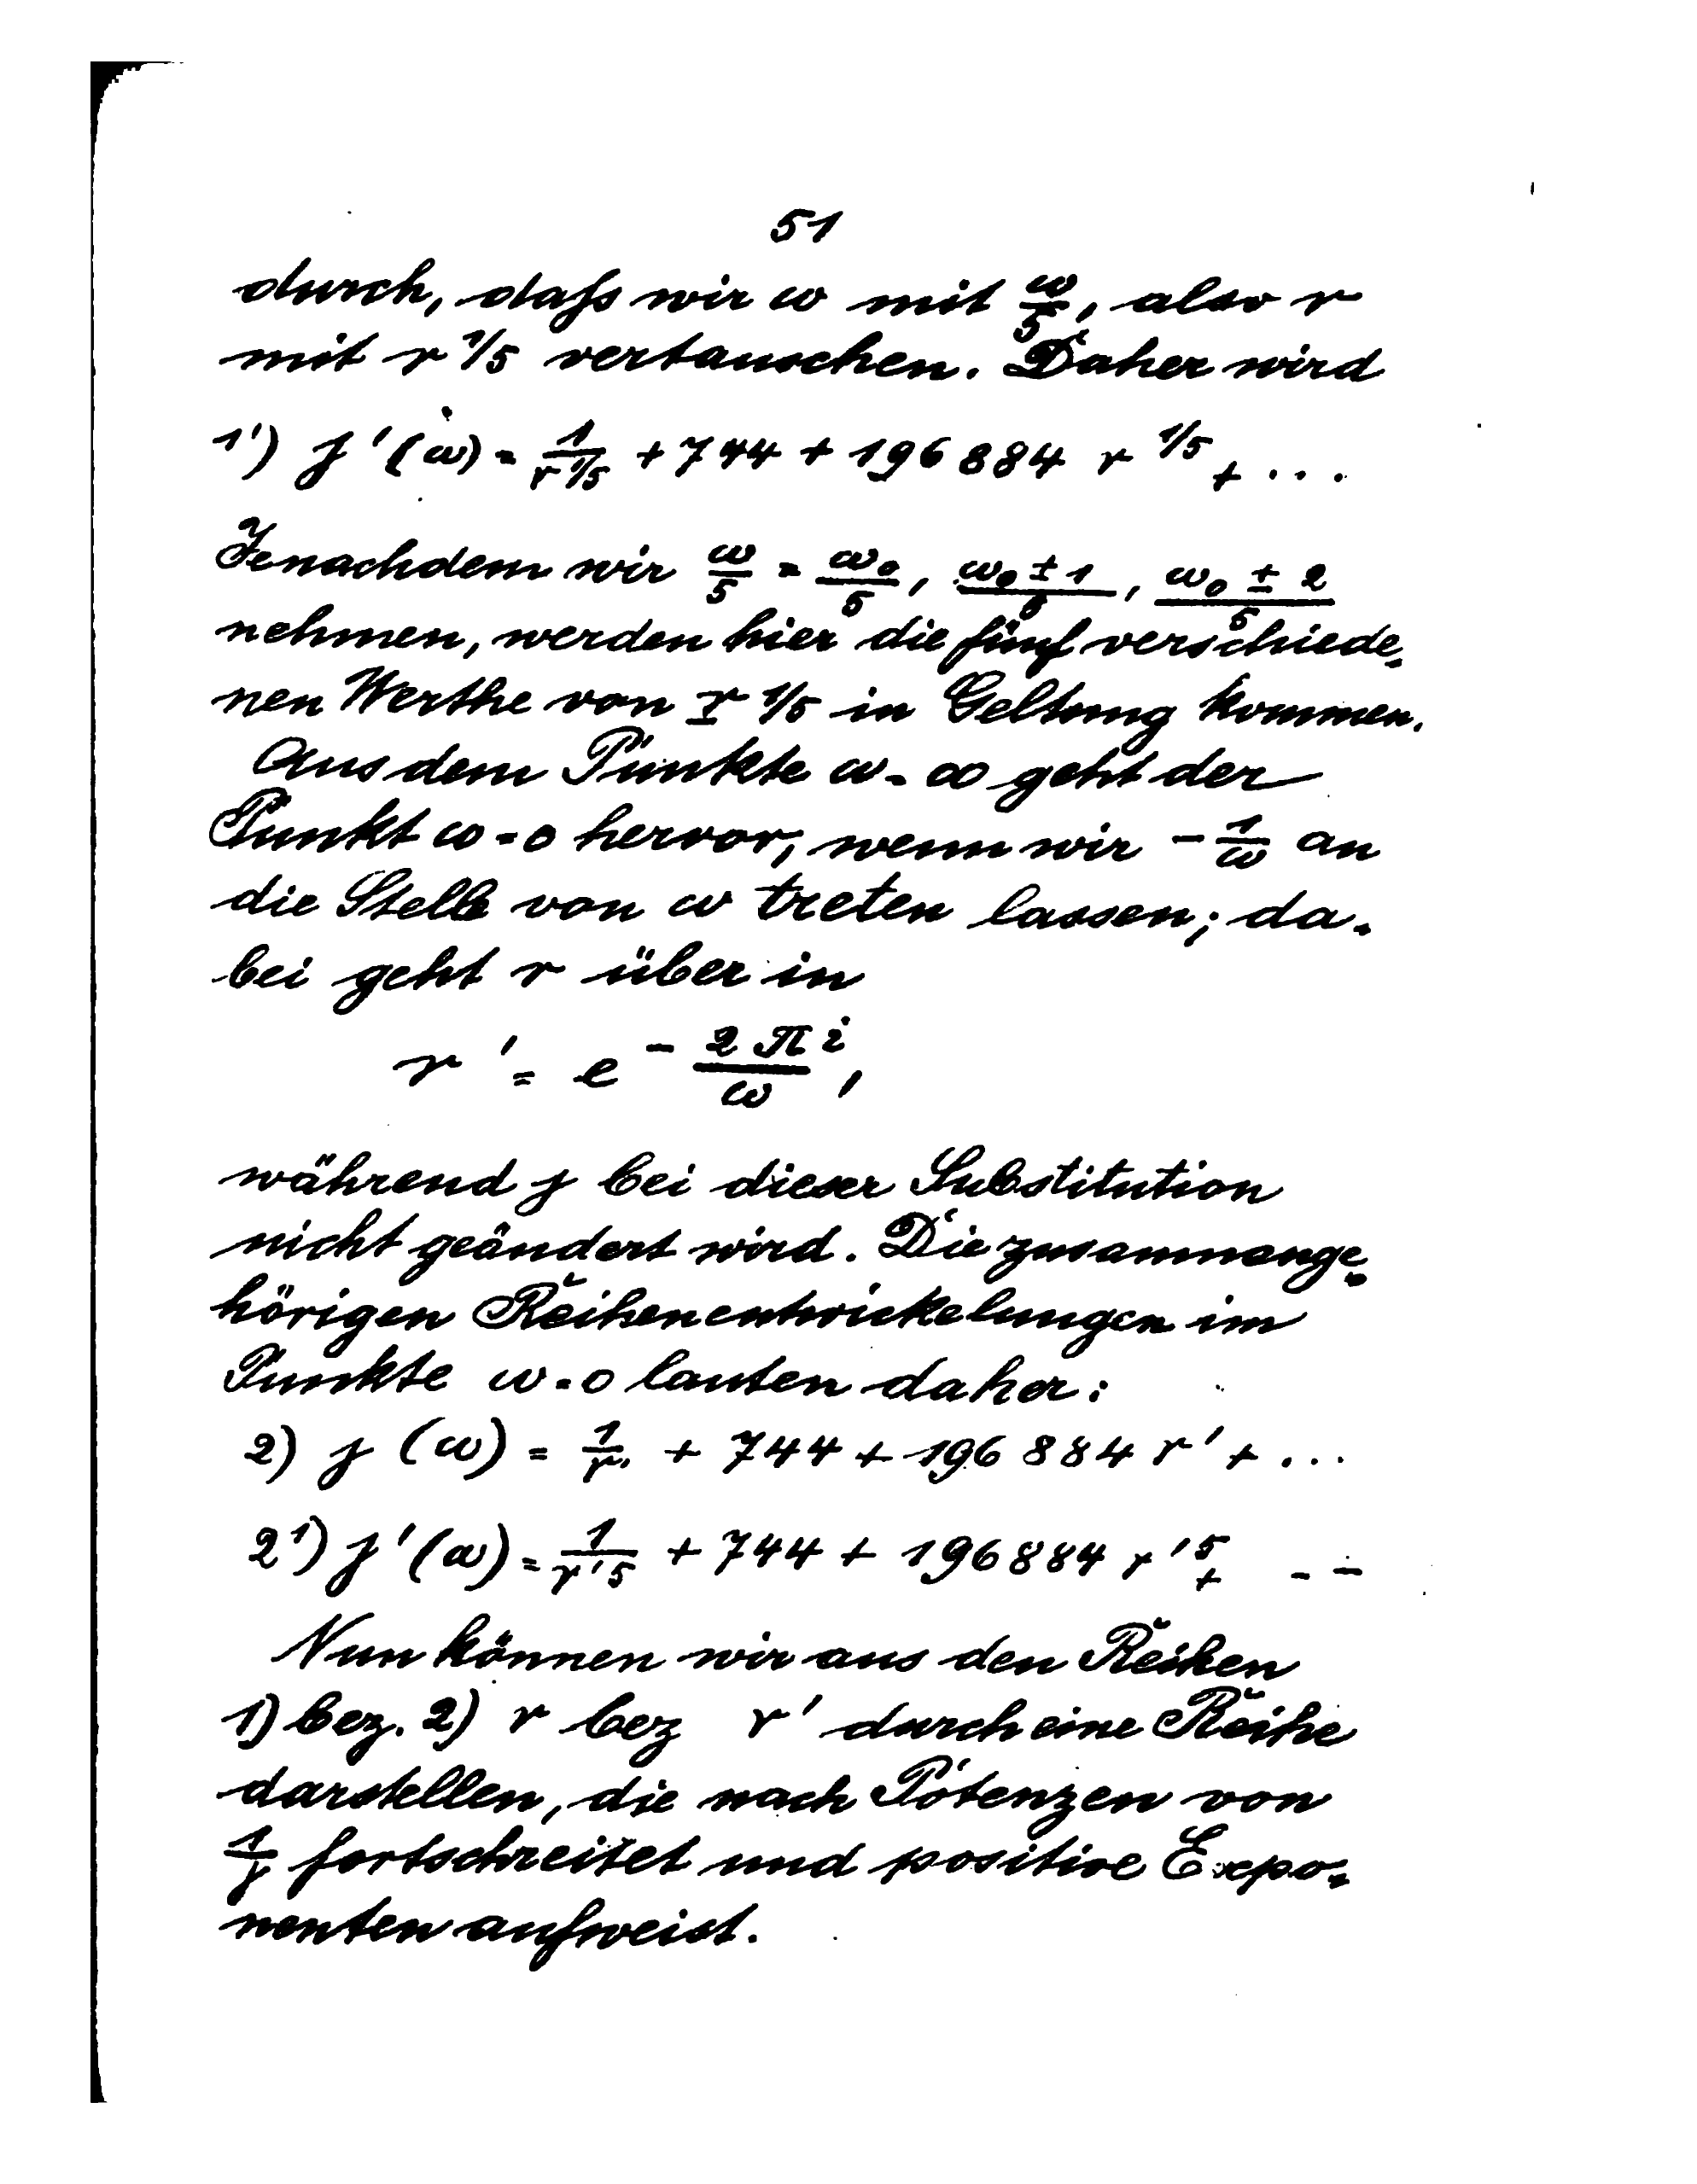 51
durch, daſs wir ω mit ω/5, also r
mit r^1/5 vertauschen. Daher wird
1') j'(ω) = 1/r^1/5 + 744 + 196884 r^1/5 + ...
Jenachdem wir ω/5 = ω₀/5, (ω₀ ± 1)/5, (ω₀ ± 2)/5
nehmen, werden hier die fünf verschiede-
nen Werthe von r^1/5 in Geltung kommen.
Aus dem Punkte ω = ∞ geht der
Punkt ω = 0 hervor, wenn wir - 1/ω an
die Stelle von ω treten lassen; da-
bei geht r über in
r' = e^(- 2πi/ω),
während j bei dieser Substitution
nicht geändert wird. Die zusammenge-
hörigen Reihenentwickelungen im
Punkte ω = 0 lauten daher:
2) j (ω) = 1/r' + 744 + 196884 r' + ...
2') j'(ω) = 1/r'^5 + 744 + 196884 r'^5 + - -
Nun können wir aus den Reihen
1) bez. 2) r bez r' durch eine Reihe
darstellen, die nach Potenzen von
1/j fortschreitet und positive Expo-
nenten aufweist.